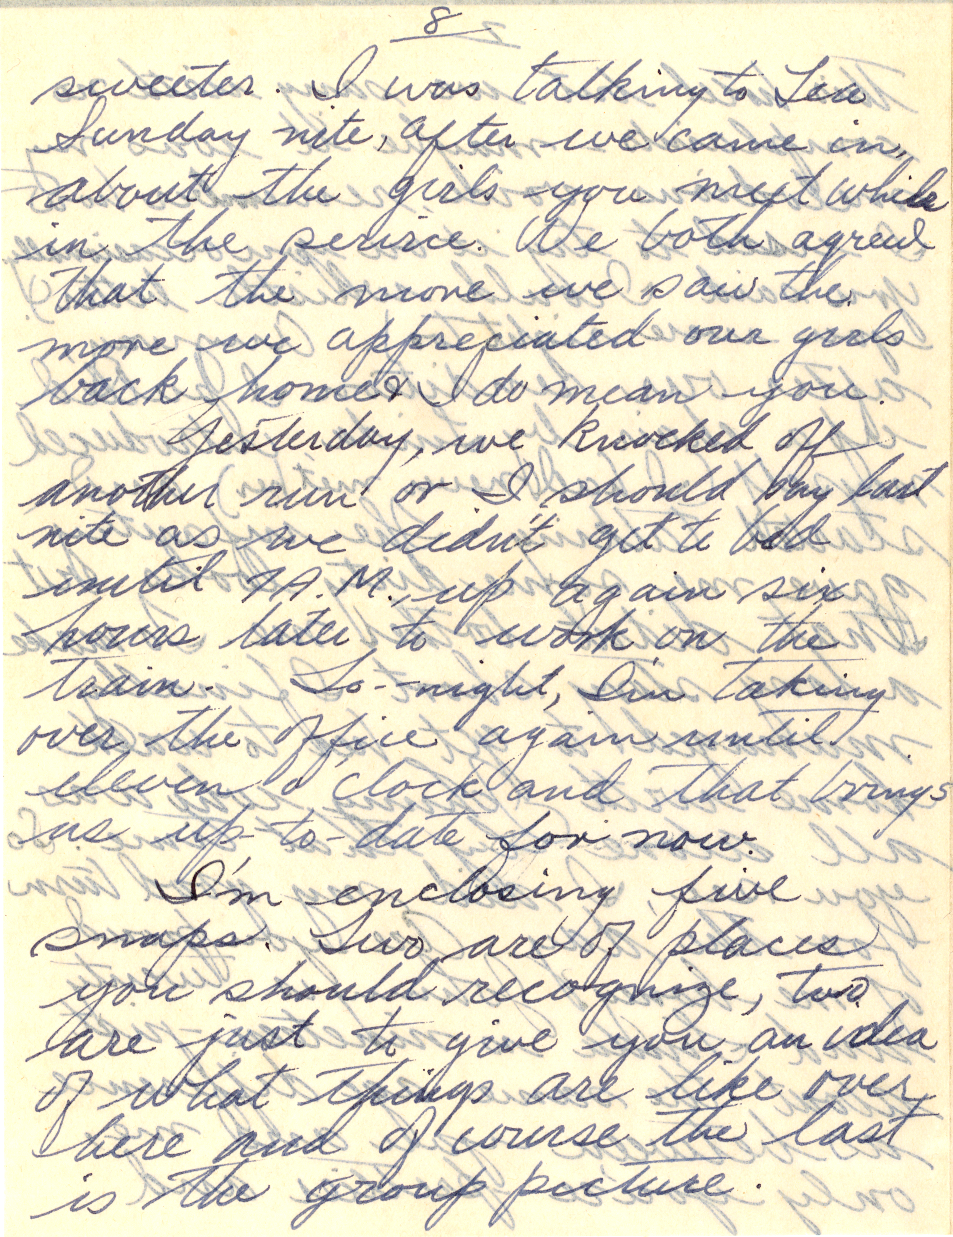 8
sweeter. I was talking to Lew
Sunday nite, after we came in,
about the girls you meet while
in the serivce. We both agreed
that the more we saw the
more we appreciated our girls
back home & I do mean you.
Yesterday, we knocked off
another run or I should say last
nite as we didn't get to bed
until 7 A.M., up again six
hours later to work on the
train. To-night, I'm taking
over the office again until
eleven o'clock and that brings
us up-to-date for now.
I'm enclosing five
snaps. Two are of places
you should recognize, two
are just to give you an idea
of what things are like over
here and of course the last
is the group picture.